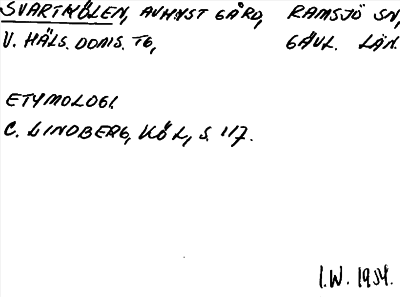 SVARTKÖLEN, AVHYST GÅRD, RAMSJÖ SN,
V. HÄLS. DOMS. TG, GÄVL. LÄN.
ETYMOLOGI.
C. LINDBERG, KÖL, S. 117.
I.W. 1954.